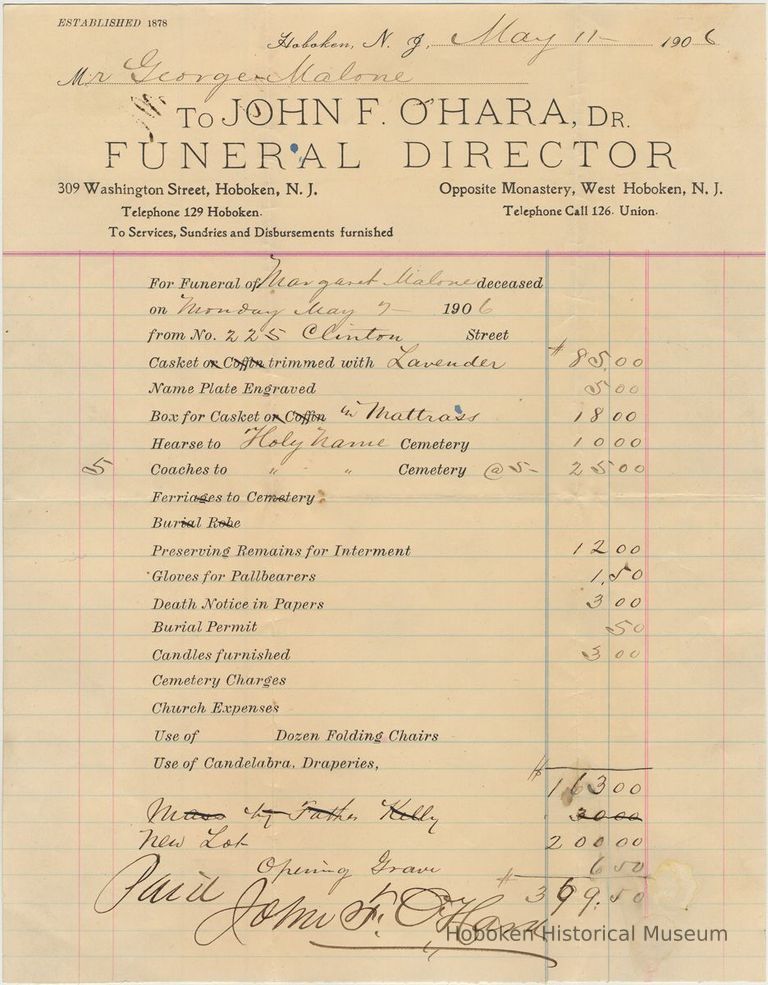 ESTABLISHED 1878
Hoboken, N. J. May 11 1906
Mr George Malone
To JOHN F. O'HARA, Dr.
FUNERAL DIRECTOR
309 Washington Street, Hoboken, N. J. Opposite Monastery, West Hoboken, N. J.
Telephone 129 Hoboken. Telephone Call 126. Union.
To Services, Sundries and Disbursements furnished
For Funeral of Margaret Malone deceased
on Monday May 7 1906
from No. 225 Clinton Street
Casket or Coffin trimmed with Lavender $ 85.00
Name Plate Engraved 5 00
Box for Casket or Coffin Mattrass 18 00
Hearse to Holy Name Cemetery 10 00
5 Coaches to " " Cemetery @ 5- 25 00
Ferriages to Cemetery
Burial Robe
Preserving Remains for Interment 12 00
Gloves for Pallbearers 1.50
Death Notice in Papers 3 00
Burial Permit 50
Candles furnished 3 00
Cemetery Charges
Church Expenses
Use of Dozen Folding Chairs
Use of Candelabra. Draperies,
$ 163 00
Mass by Father Kelly 30 00
New Lot 200 00
Opening Grave 6 50
Paid $ 369.50
John F. O'Hara
Hoboken Historical Museum